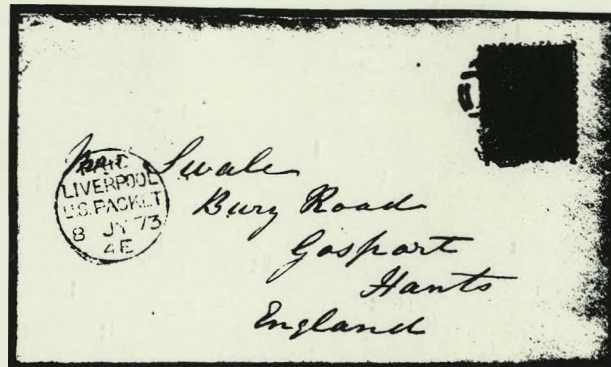 Swale
PAID
LIVERPOOL
U.S. PACKET
8 JY 73
4E
Bury Road
Gosport
Hants
England